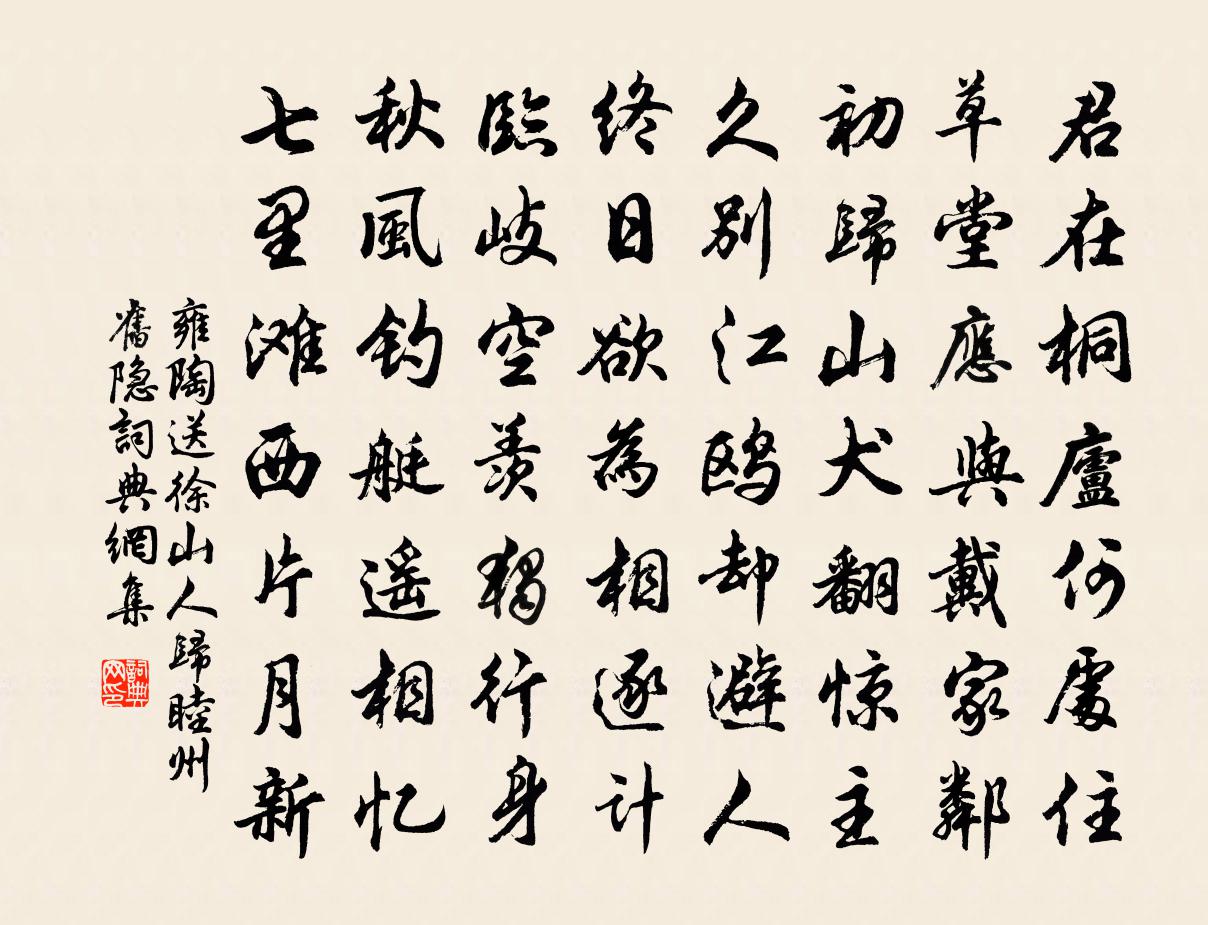 君在桐廬何處住
草堂應與戴家鄰
初歸山犬翻惊主
久別江鸥却避人
终日欲為相逐计
臨岐空羨獨行身
秋風釣艇遥相忆
七里滩西片月新
雍陶送徐山人歸睦州
舊隐詞典網集
詞典网印